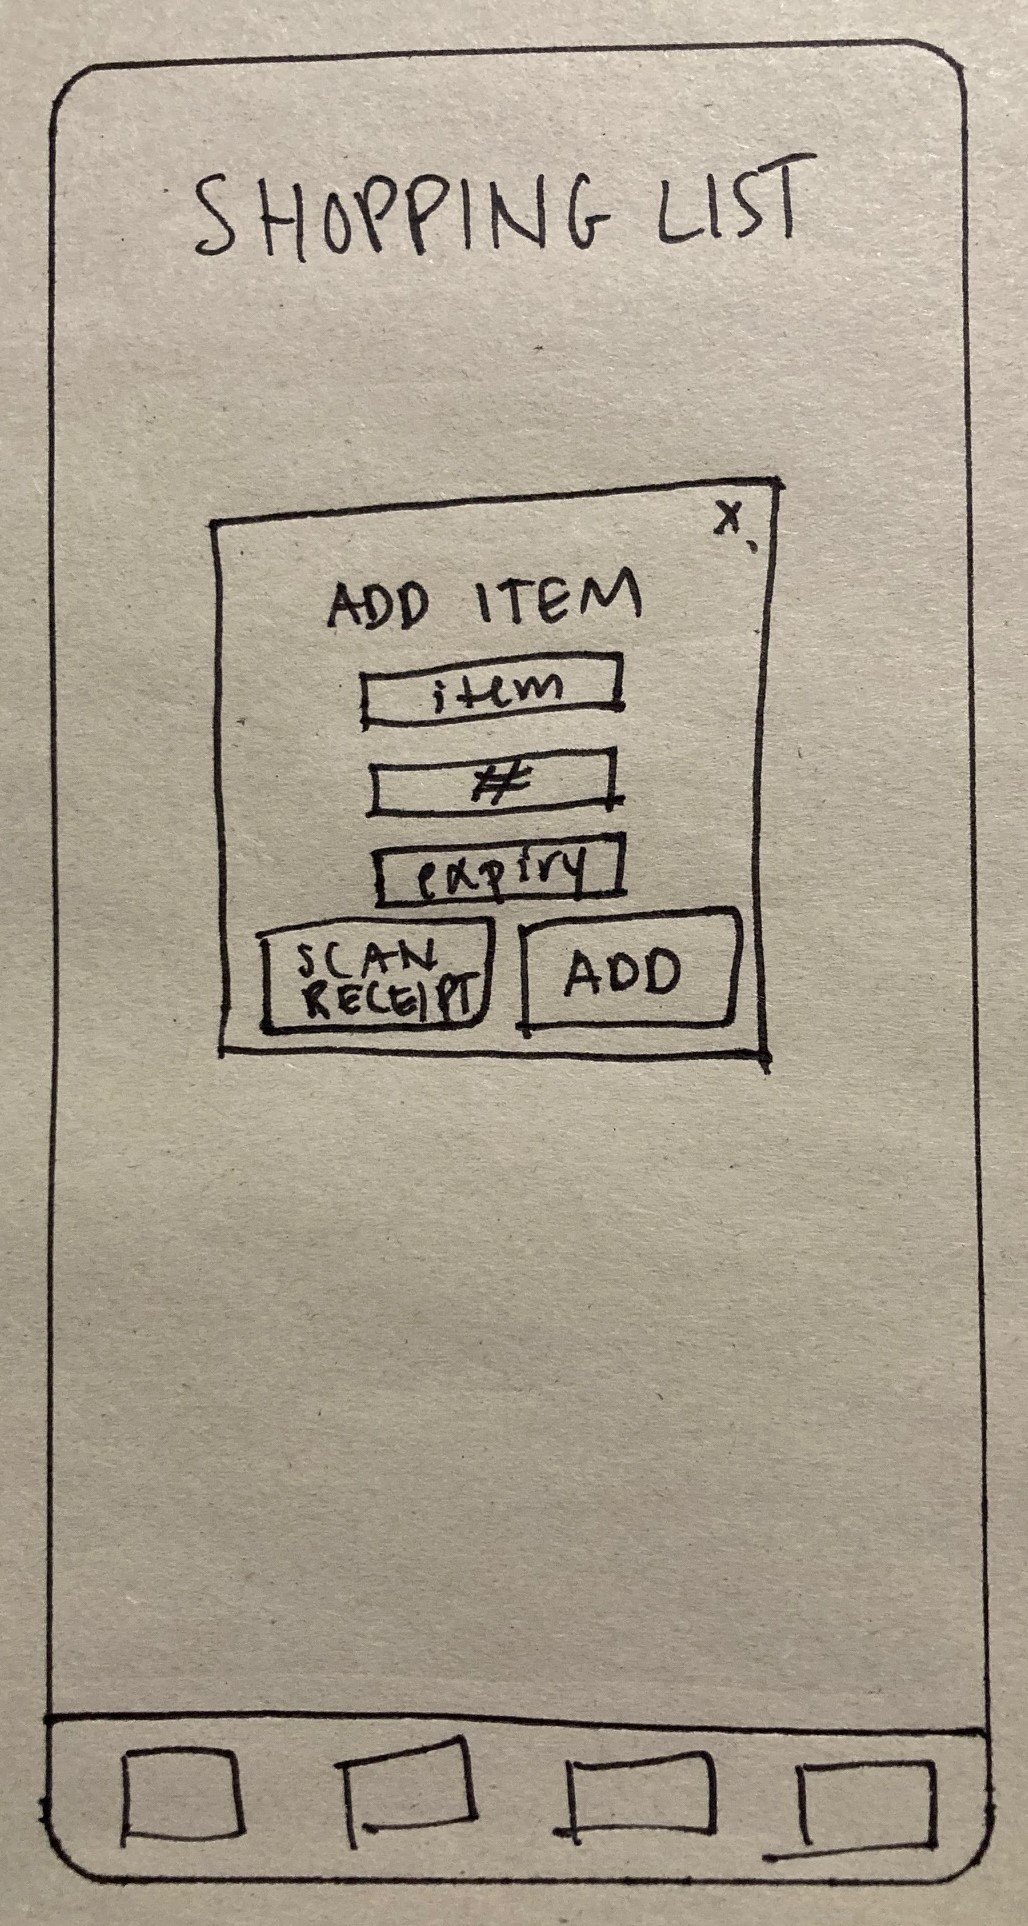 SHOPPING LIST
X
ADD ITEM
item
#
expiry
SCAN
RECEIPT
ADD